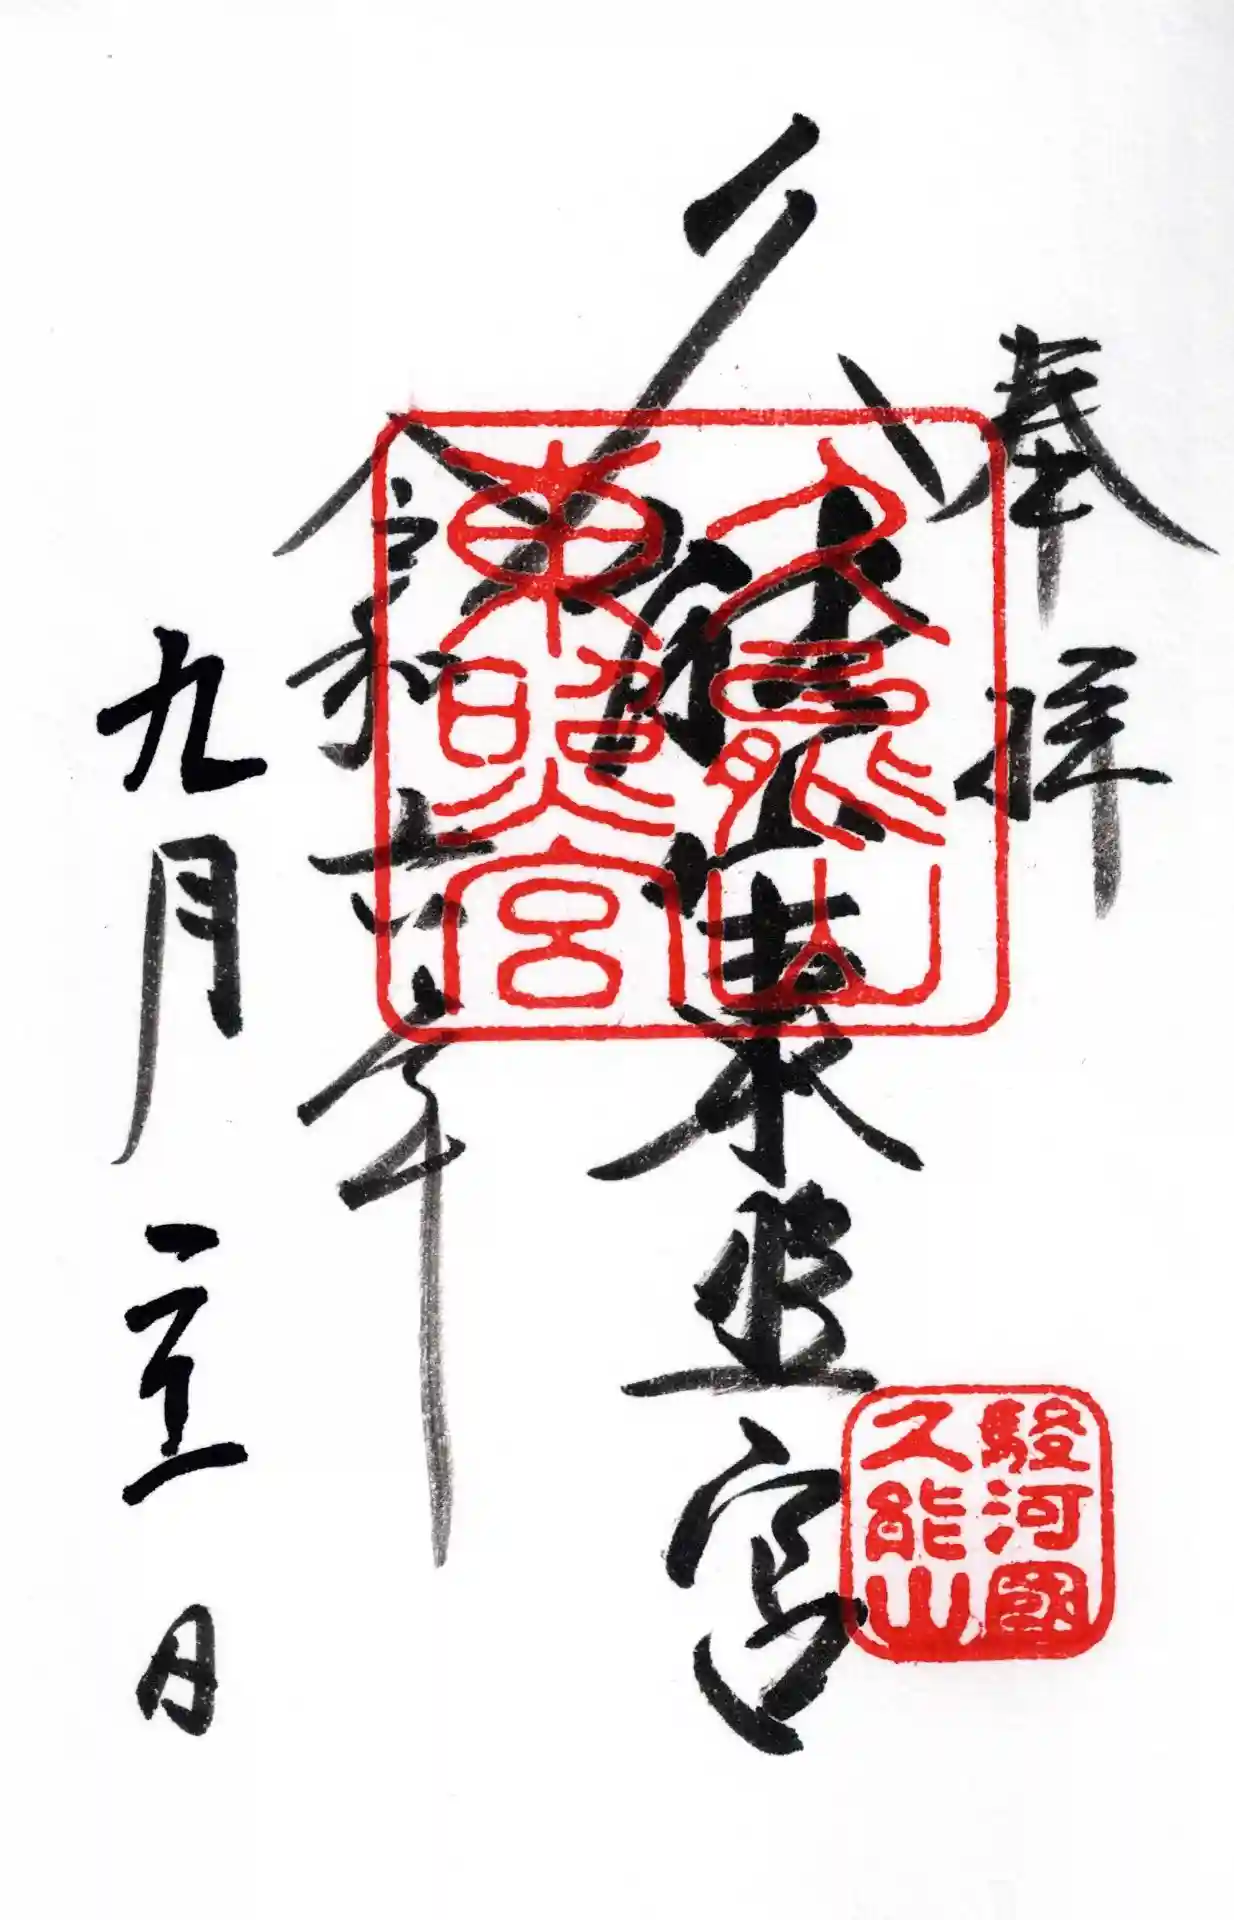 奉拝
久能山東照宮
令和六年
九月二十一日
久能山
東照宮
駿河國
久能山